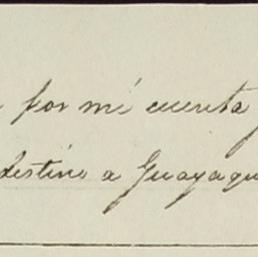 por mi cuenta
destino a Guayaqu